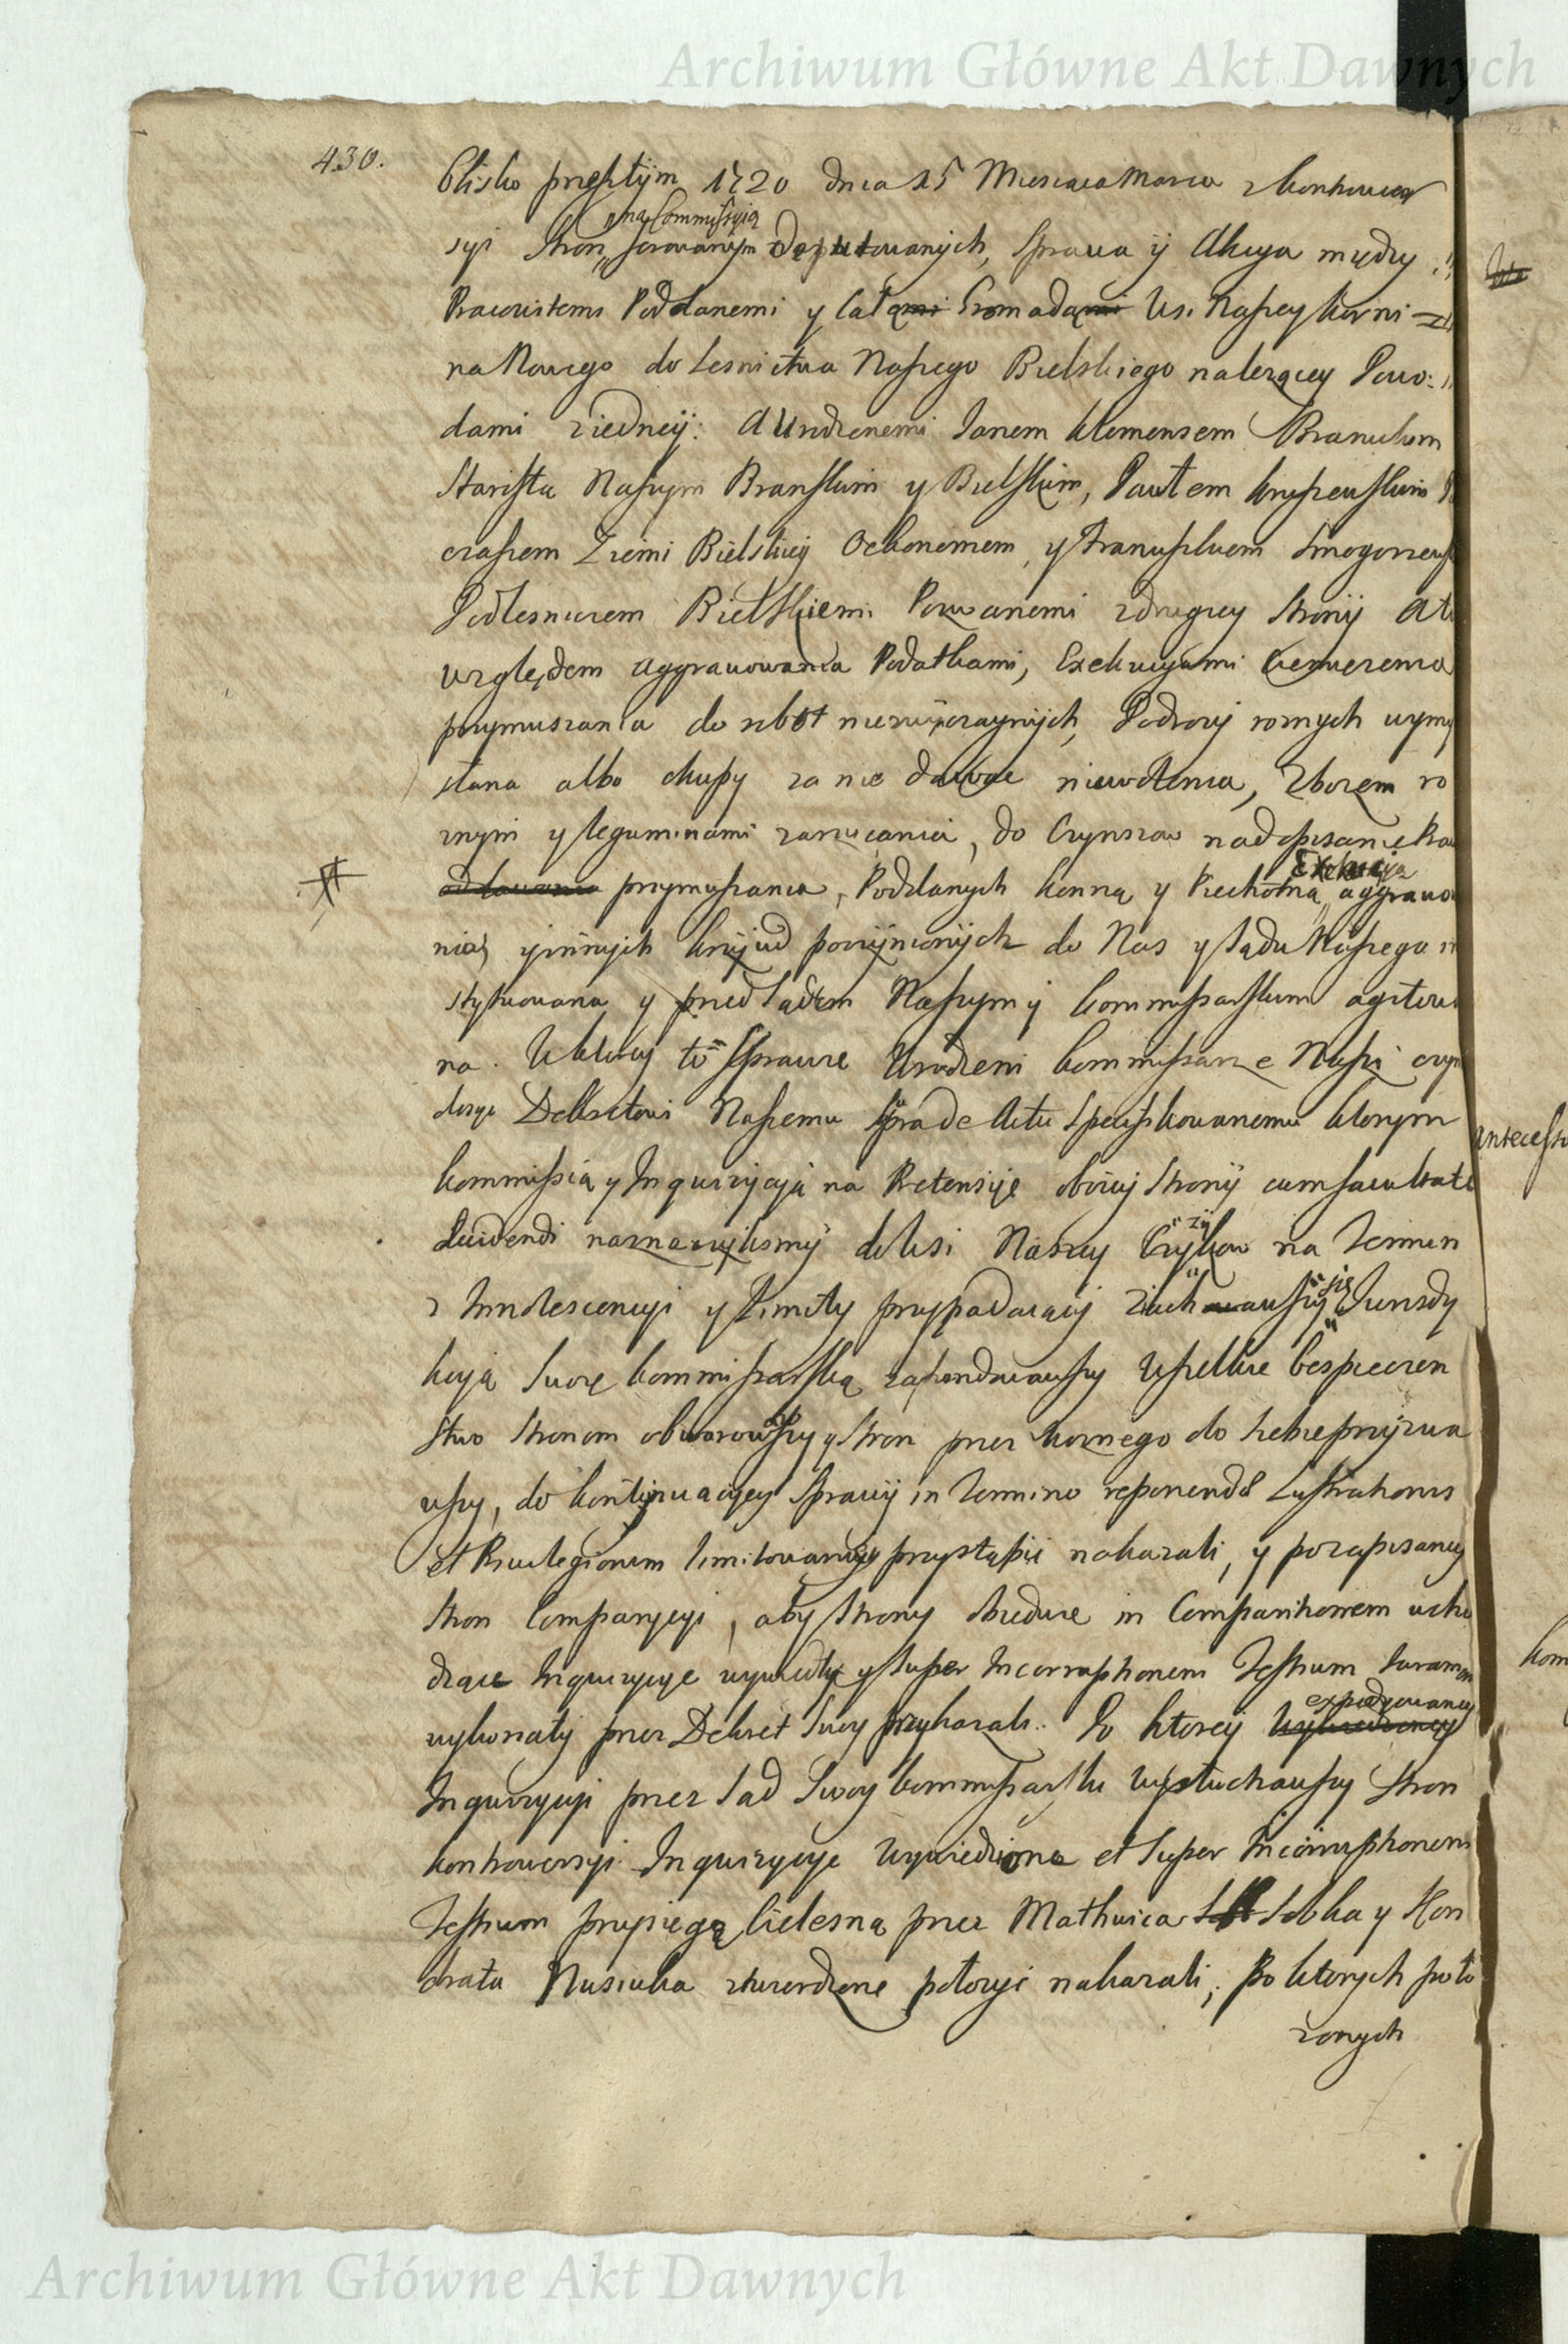 Archiwum Główne Akt Dawnych
430.
blisko przeszłym 1720 dnia 15 Miesiąca Marca z kontrower
na Commissyią
syi Stron ferowanym Deputowanych, Sprawa y Akcya między
Pracowitemi Poddanemi y całą Gromadą Wsi Naszey korni
na Nowego do Lesnictwa Naszego Bielskiego należącey Powo
dami z iedney: A Urodzenemi Janem Klemensem Branickim
Starostą Naszym Branskim y Bielskim, Pawłem
czaszem Ziemi Bielskiey Oekonomem, y Franciszkiem Smogorzews
Podlesniczem Bielskiemi Pozwanemi z drugiey Strony A to
względem aggrawowania Podatkami, Exekucyami
przymuszania do robot niezwyczaynych, Podrozy roznych wymy
slana albo okupy za nie dawac niewolenia, Zbozem ro
znym y leguminami zarzucania, do Czynszow nadopisanie
Exekucyią
przymuszania, Poddanych konną y Piechotną aggrawo
nia, y innych krzywd poczynionych do Nas y Sądu Naszego in
stytuowana y przed Sądem Naszym y kommissarskim agitowa
na. W ktorey to Sprawie Urodzeni kommissarze Nasi czyn
dosyc Dekretowi Naszemu Specifikowanemu ktorym
kommissią y Inquizycyią na Pretensyie oboiey Strony cum facultate
decidendi naznaczylismy do Wsi Naszey Czyzykow na Termin
z Innotescencyi y Limity przypadaiący Ziachawszy się Jurisdy
kcyią Swoię kommissarską zafundowawszy Wszelkie bespieczen
stwo Stronom obwarowawszy y Stron przez Woznego do siebie przyzwa
wszy, do kontynuacyey Sprawy in Termino reponendae Lustrationis
et Privilegiorum limitowaney przystąpic nakazali, y po zapisaney
Stron Comparycyi, aby Strony obiedwie in Comparitionem wcho
dzące Inquizycyie wywiedły y super Incorruptionem Testium Jurament
expedyowaney
wykonały przez Dekret Swoy przykazali. Po ktorey
Inquizycyi przez Sąd Swoy kommissarski wysłuchawszy Stron
kontrowersyi Inquizycyie wywiedzione et super Incorruptionem
Testium przysięgą Cielesną przez Mathwiea Sobka y Kon
drata Nusiuka ztwierdzone położyc nakazali; Po ktorych poło
zonych
Archiwum Główne Akt Dawnych